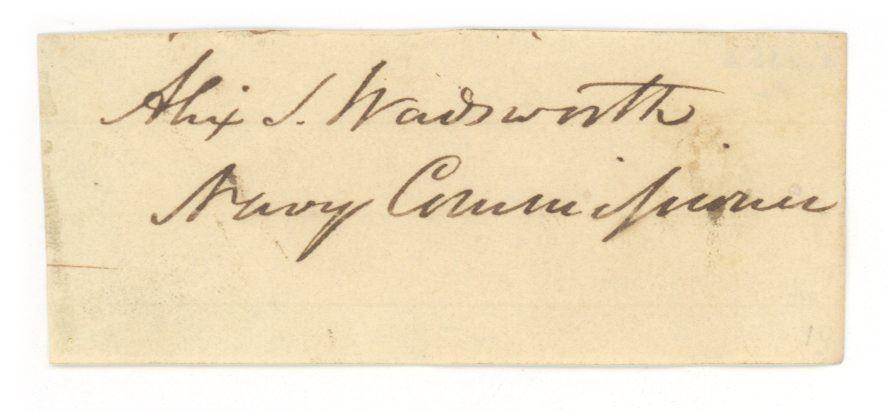 Alex S. Wadsworth
Navy Commissioner